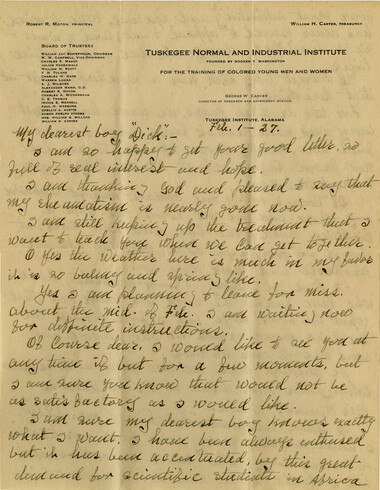 ROBERT R. MOTON, PRINCIPAL
WILLIAM H. CARTER, TREASURER
BOARD OF TRUSTEES
TUSKEGEE NORMAL AND INDUSTRIAL INSTITUTE
FOUNDED BY BOOKER T. WASHINGTON
FOR THE TRAINING OF COLORED YOUNG MEN AND WOMEN
WILLIAM JAY SCHIEFFELIN, CHAIRMAN
W. W. CAMPBELL, VICE-CHAIRMAN
CHARLES E. MASON
JULIUS ROSENWALD
WILLIAM G. WILLCOX
A. J. WILBORN
ALEXANDER MANN, D.D.
ROBERT R. MOTON
PAUL M. WARBURG
GEORGE W. CARVER
DIRECTOR OF RESEARCH AND EXPERIMENT STATION
TUSKEGEE INSTITUTE, ALABAMA
Feb. 1 - 27.
My dearest boy "Dick":-
I am so happy to get your good letter, so
full of real interest and hope.
I am thanking God and pleased to say that
my rheumatism is nearly gone now.
I am still keeping up the treatment that I
want to teach you when we can get together.
O yes the weather here is much in my favor
it is so balmy and spring like.
Yes I am planning to leave for Miss.
about the mid. of Feb. I am waiting now
for diffinite instructions.
Of course dear, I would like to see you at
any time if but for a few moments, but
I am sure you know that would not be
as satisfactory as I would like.
I am sure my dearest boy knows exactly
what I want. I have been always enthused
but it has been accentuated, by this great
demand for scientific students in Africa